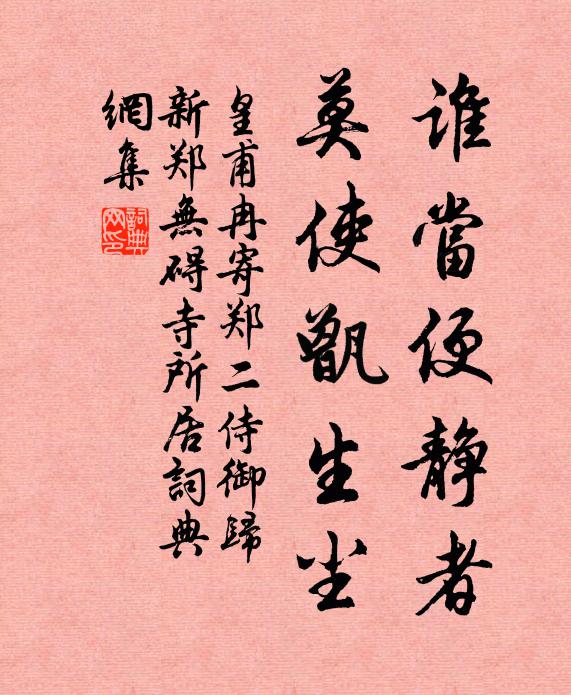 谁當便静者
莫使甑生尘
皇甫冉寄郑二侍御歸
新郑無碍寺所居詞典
網集
詞典
网印